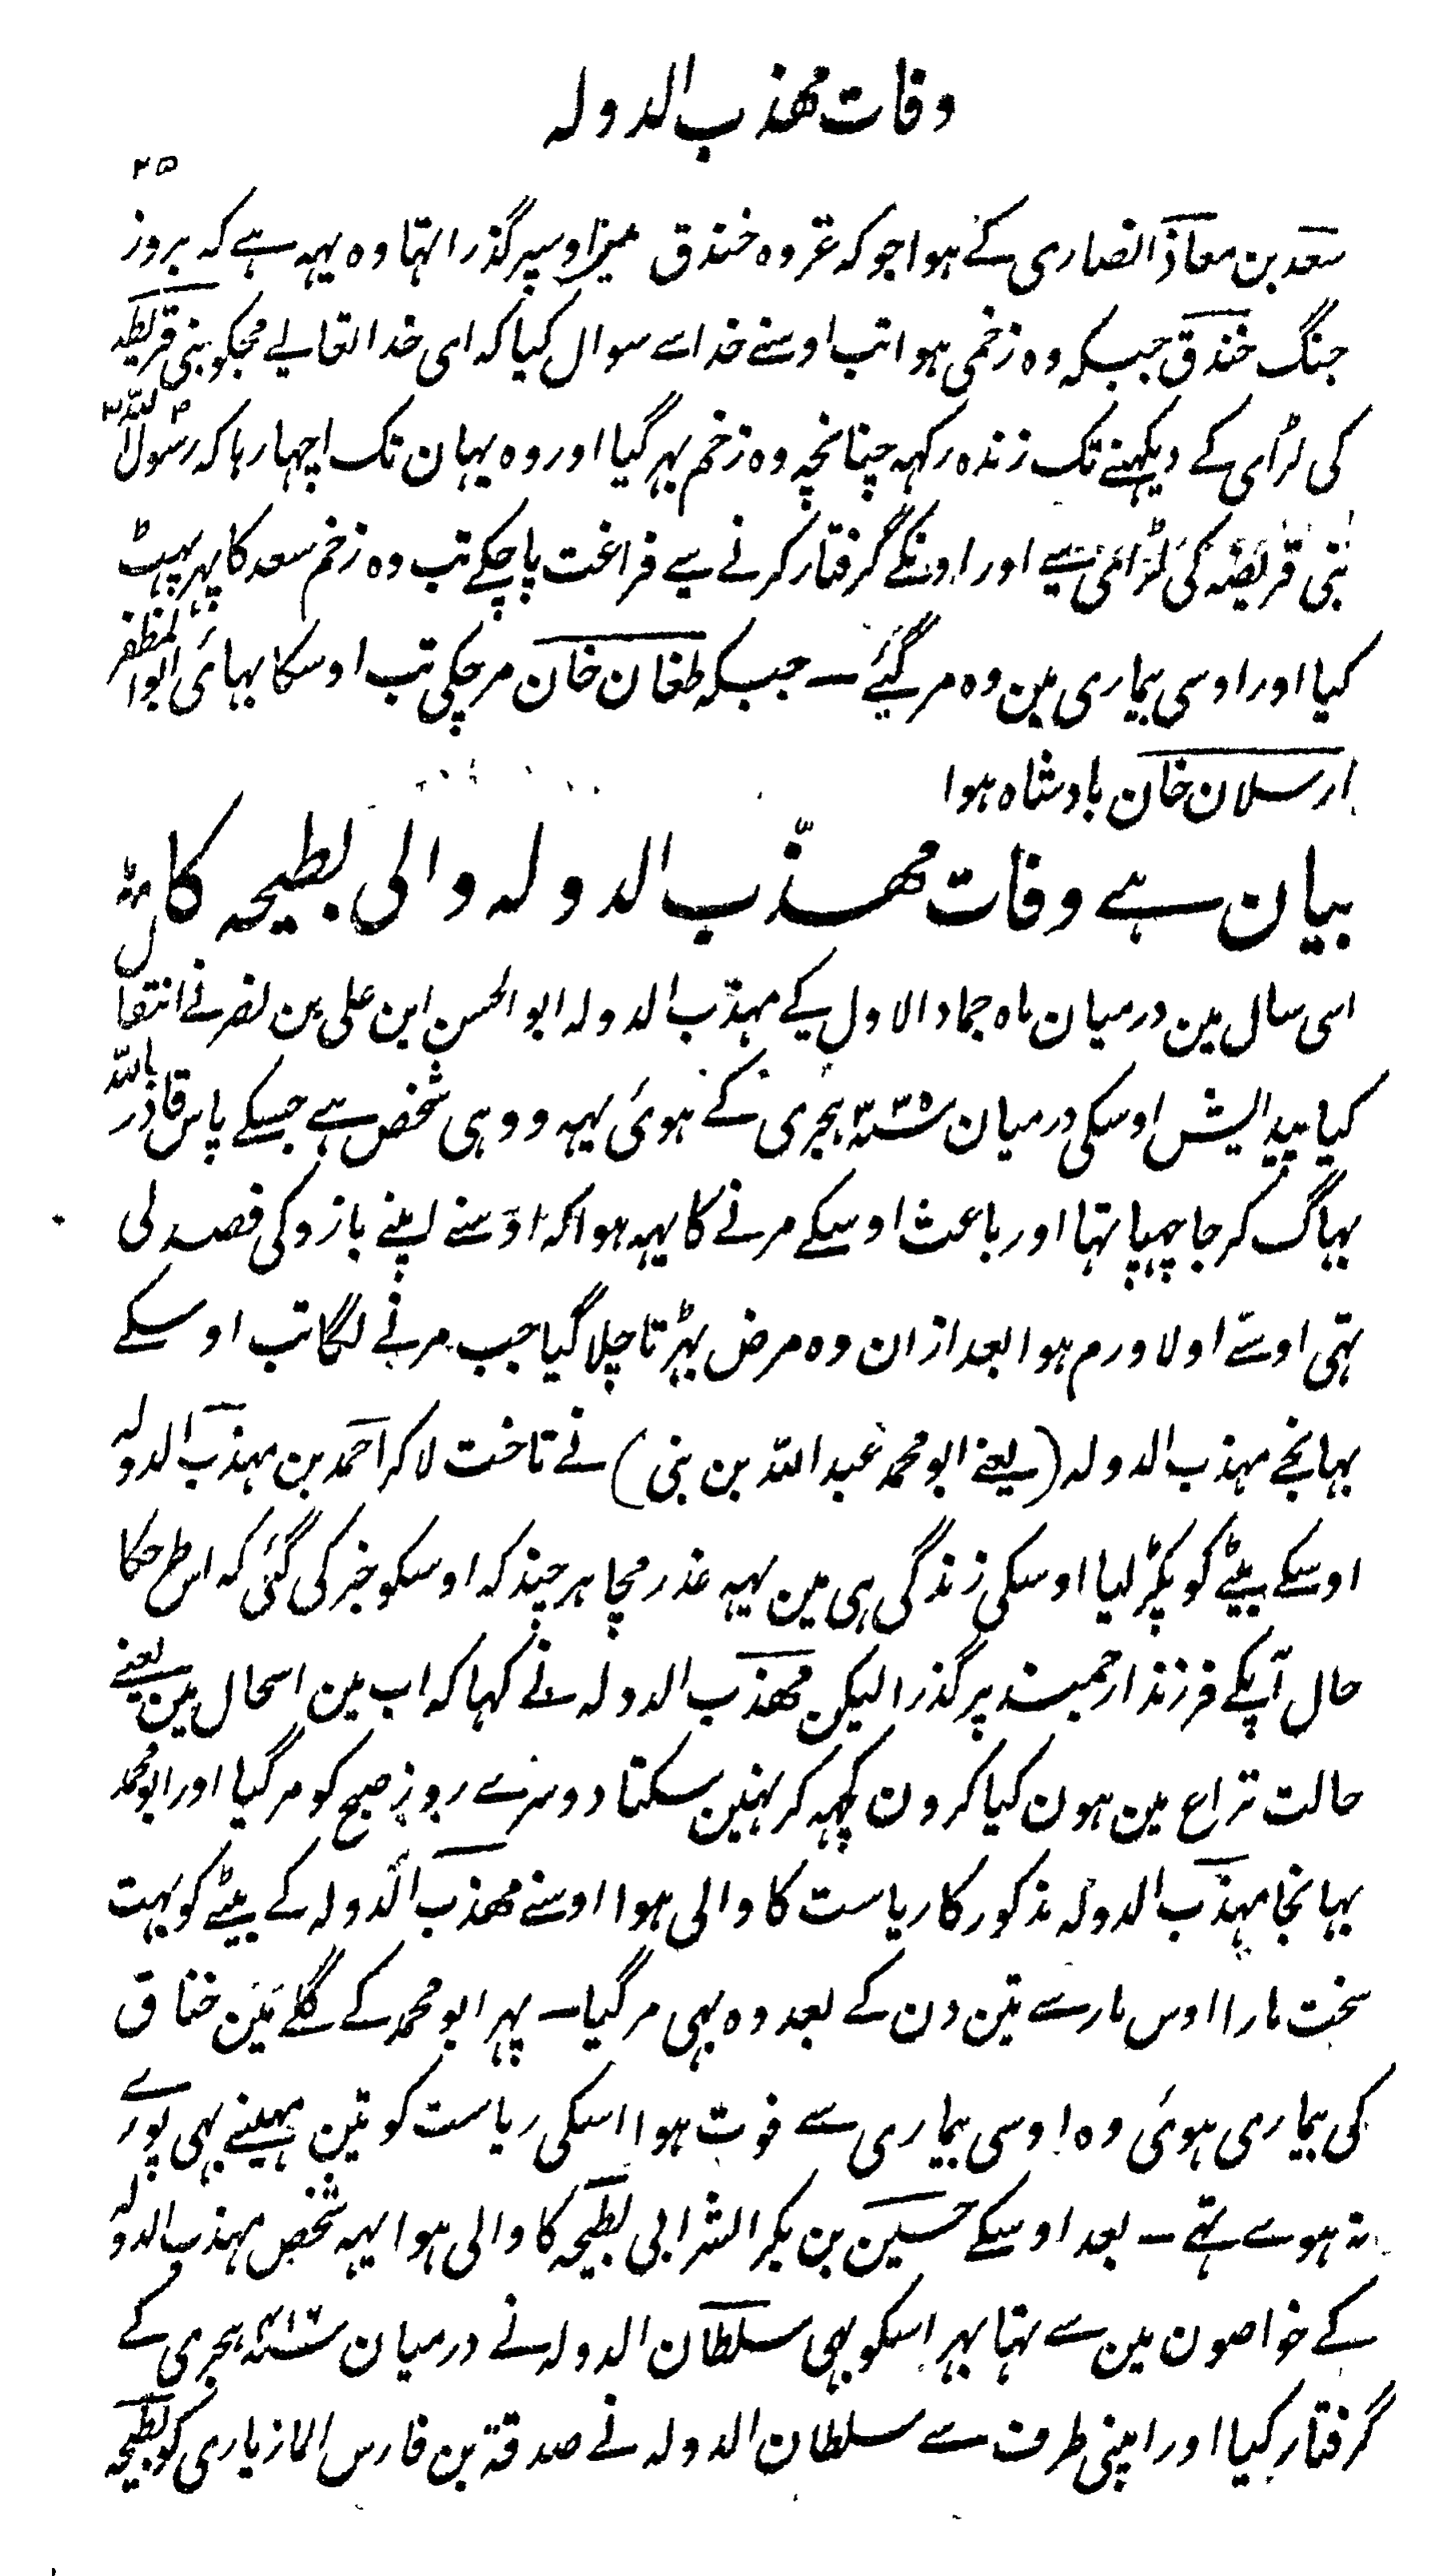 وفات مھذب الدولہ
۲۵
سعد بن معاذ انصاری کے ہوا جو کہ غزوہ خندق مین اوسپر گذرا تہا وہ یہہ ہے کہ بروز
جنگ خندق جبکہ وہ زخمی ہوا تب اوسنے خدا سے سوال کیا کہ ای خدا تعالے مجکو بنی قریظہ
کی لڑای کے دیکہنے تک زندہ رکہہ چنانچہ وہ زخم بہر گیا اور وہ یہان تک اچہا رہا کہ رسول اللہ
بنی قریضہ کی لڑائی سے اور اونکے گرفتار کرنے سے فراغت پاچکے تب وہ زخم سعد کا پہر پہٹ
گیا اور اوسی بیماری مین وہ مر گیے – جبکہ طغان خان مر چکی تب اوسکا بہائی ابوالمظفر
ارسلان خان بادشاہ ہوا
بیان ہے وفات مھذّب الدولہ والی بطیحہ کا
اسی سال مین درمیان ماہ جماد الاول کے مہذب الدولہ ابو الحسن ابن علی بن نصر نے انتقال
کیا پیدایش اوسکی درمیان ہجری کے ہوئی یہہ و وہی شخص ہے جسکے پاس قادر باللہ
بہاگ کر جا چہپا تہا اور باعث اوسکے مرنے کا یہہ ہوا کہ اوسنے اپنے بازو کی فصد لی
تہی اوسے اولا ورم ہوا بعد ازان وہ مرض بہڑتا چلا گیا جب مرنے لگا تب اوسکے
بہانجے مہذب الدولہ (یعنے ابو محمد عبد اللہ بن بنی) نے تاخت لا کر احمد بن مہذب الدولہ
اوسکے بیٹے کو پکڑ لیا اوسکی زندگی ہی مین یہہ غدر مچا ہر چند کہ اوسکو خبر کی گئی کہ اس طرحکا
حال آپکے فرزند ارجمند پر گذرا لیکن مھذب الدولہ نے کہا کہ اب مین اسحال مین یعنے
حالت نزاع مین ہون کیا کرون کچہہ کر نہین سکتا دوسرے روز صبح کو مر گیا اور ابو محمد
بہانجا مہذب الدولہ مذکور کا ریاست کا والی ہوا اوسنے مھذب الدولہ کے بیٹے کو بہت
سخت مارا اوس مار سے تین دن کے بعد وہ بہی مر گیا – پہر ابو محمد کے گلے مین خناق
کی بیماری ہوئی وہ اوسی بیماری سے فوت ہوا اسکی ریاست کو تین مہینے بہی پورے
نہ ہوے تہے – بعد اوسکے حسین بن بکر الشرابی بطیحہ کا والی ہوا یہہ شخص مہذب الدولہ
کے خواصون مین سے تہا پہر اسکو بہی سلطان الدولہ نے درمیان ہجری کے
گرفتار کیا اور اپنی طرف سے سلطان الدولہ نے صدقۃ بن فارس المازیاری کو بطیحہ